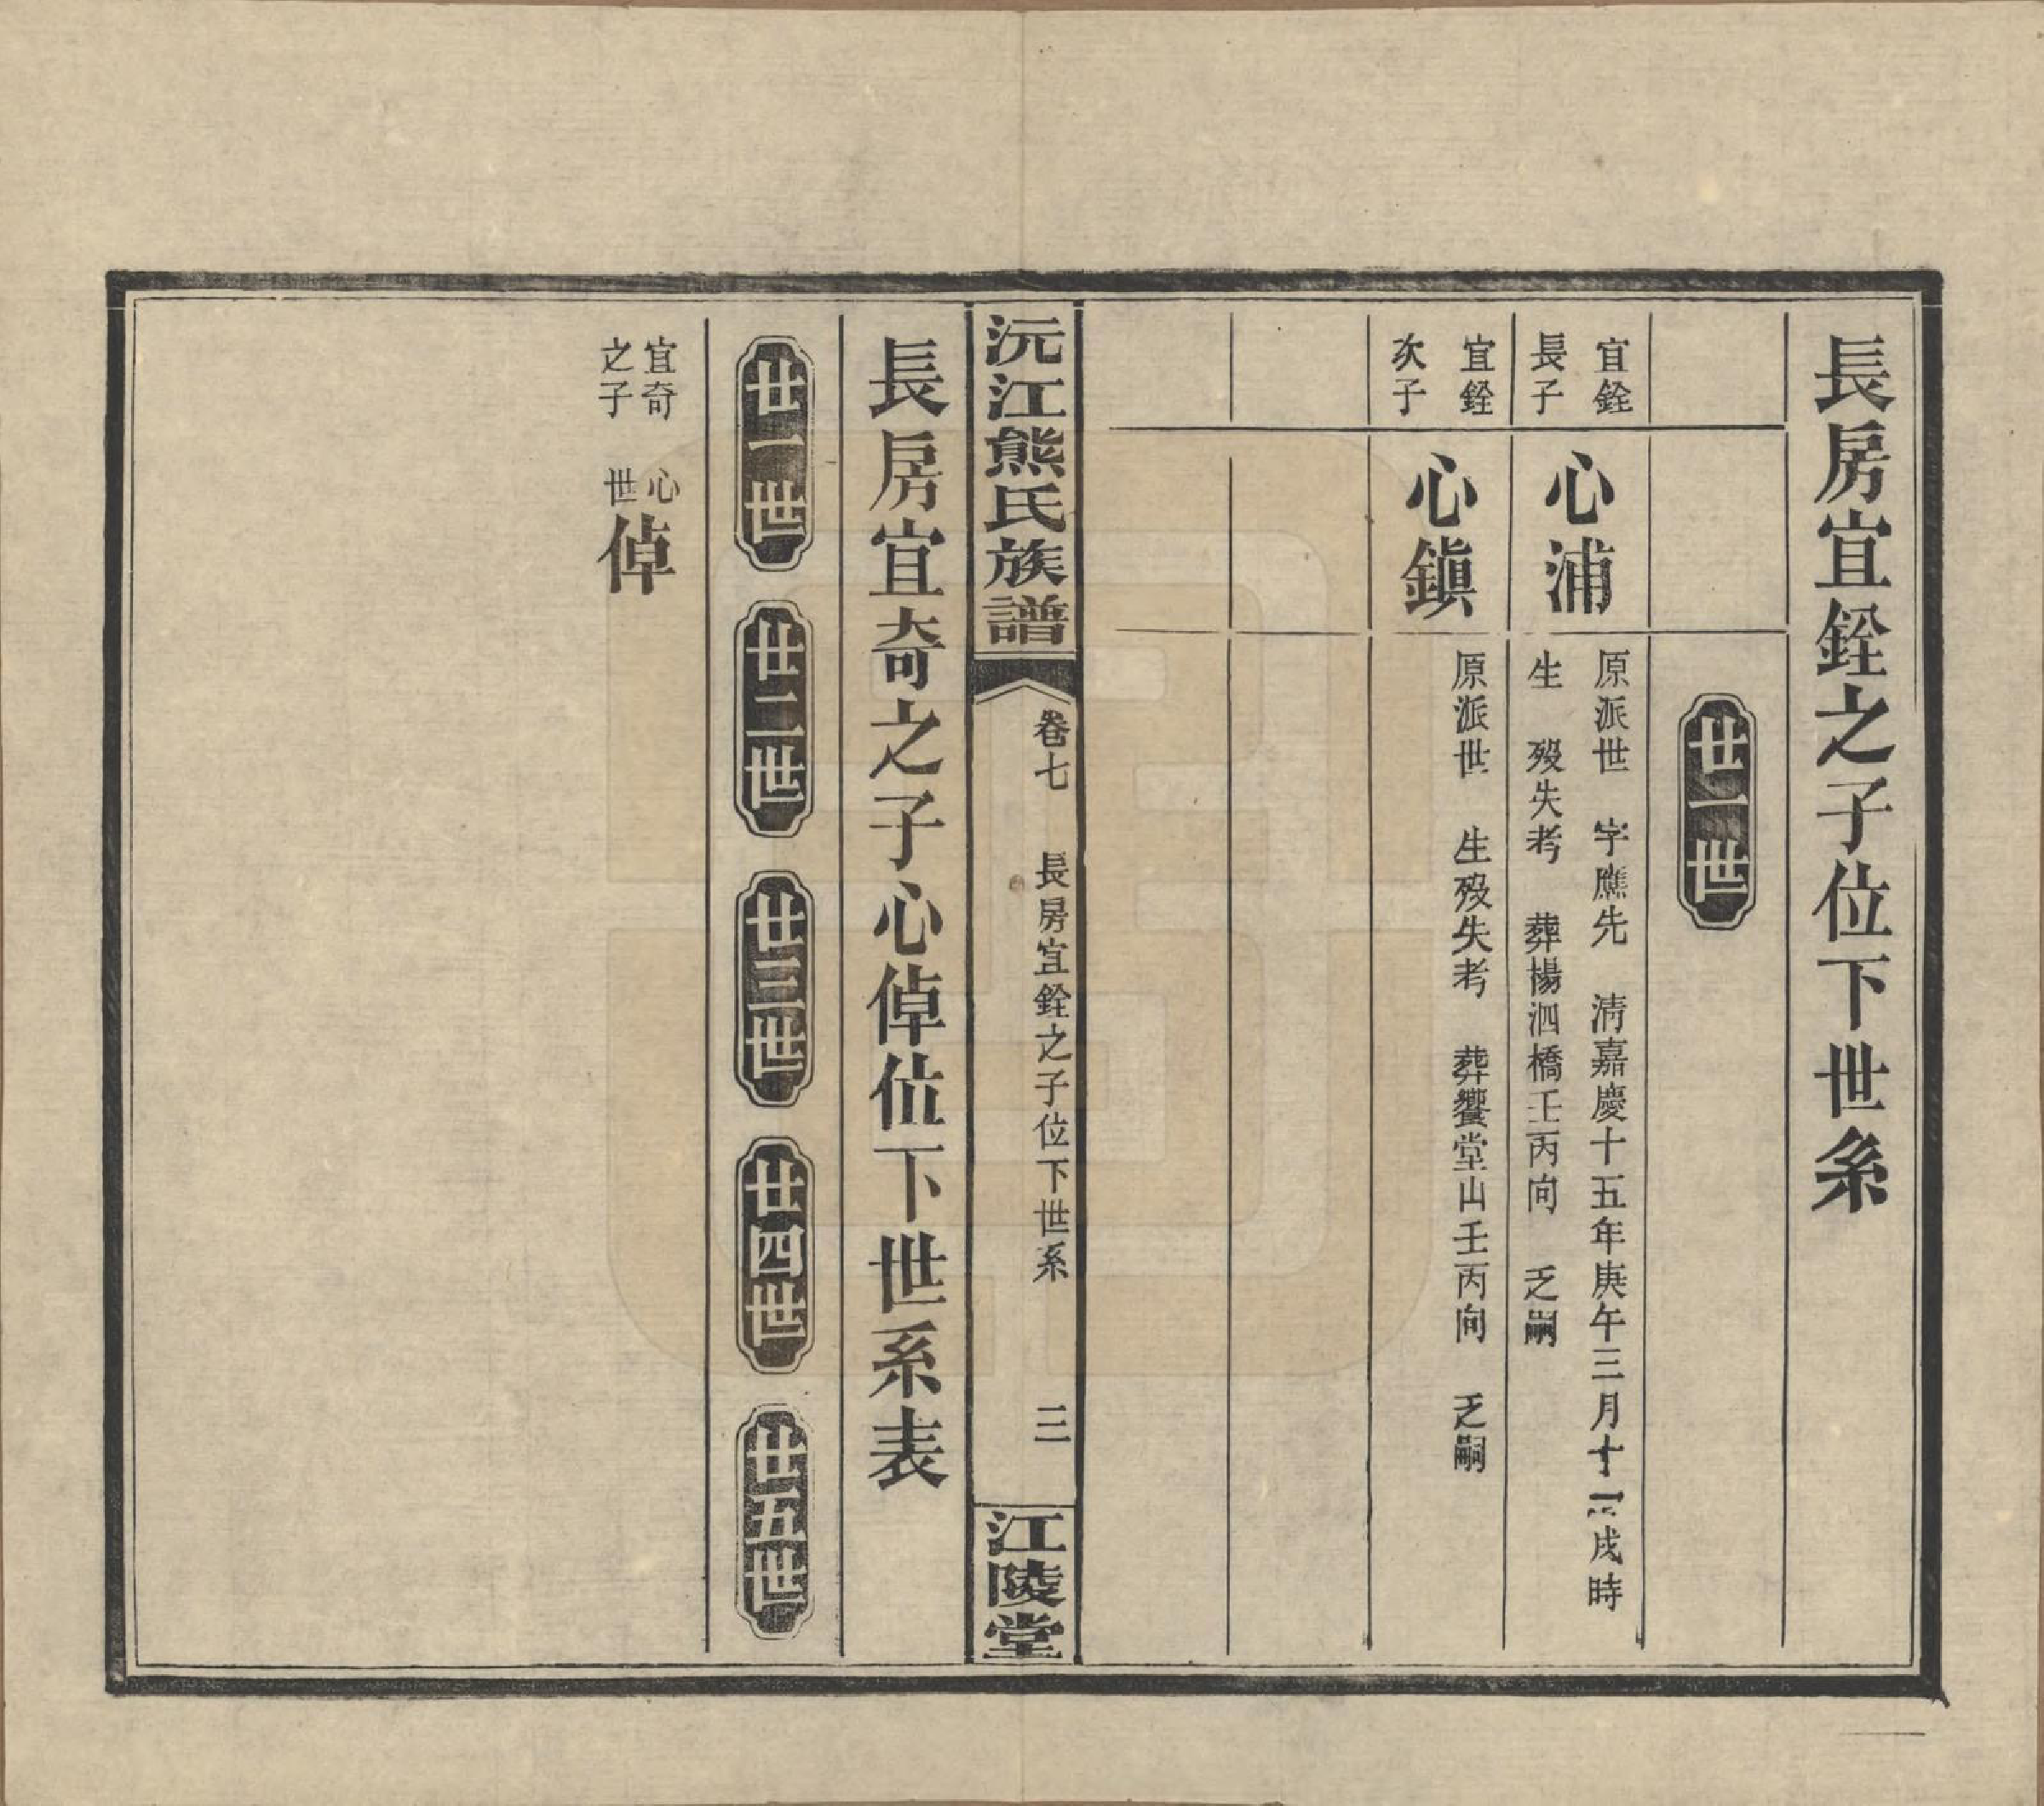 長房宜銓之子位下世系
廿一世
宜銓
長子
心浦
原派世 字鷹先 清嘉慶十五年庚午三月十二戌時
生 歿失考 葬楊泗橋壬丙向 乏嗣
宜銓
次子
心鎮
原派世 生歿失考 葬饗堂山壬丙向 乏嗣
沅江熊氏族譜
卷七 長房宜銓之子位下世系 三
江陵堂
長房宜奇之子心倬位下世系表
廿一世
廿二世
廿三世
廿四世
廿五世
宜奇
之子
心
世
倬